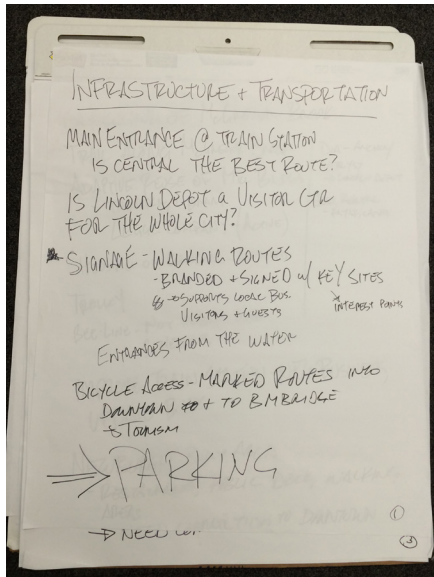 INFRASTRUCTURE + TRANSPORTATION
MAIN ENTRANCE @ TRAIN STATION
IS CENTRAL THE BEST ROUTE?
IS LINCOLN DEPOT A VISITOR CTR
FOR THE WHOLE CITY?
SIGNAGE - WALKING ROUTES
- BRANDED + SIGNED W/ KEY SITES
→ SUPPORTS LOCAL BUS. INTEREST POINTS
VISITORS + GUESTS
ENTRANCES FROM THE WATER
BICYCLE ACCESS - MARKED ROUTES INTO
DOWNTOWN + TO BMBRIDGE
→ TOURISM
⇒ PARKING
→ NEED
1
3